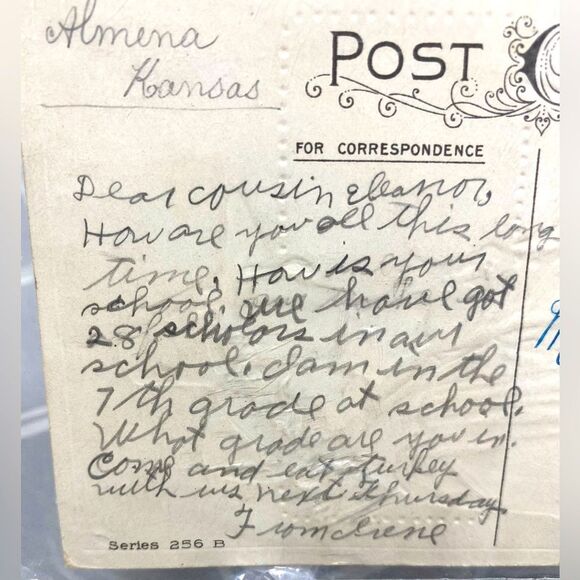 Almena
Kansas
POST
FOR CORRESPONDENCE
Dear cousin Eleanor,
How are you all this long
time. How is your
school. we have got
28 scholars in our
school. I am in the
7th grade at school.
What grade are you in.
Come and eat turkey
with us next Thursday.
From Irene
Series 256 B